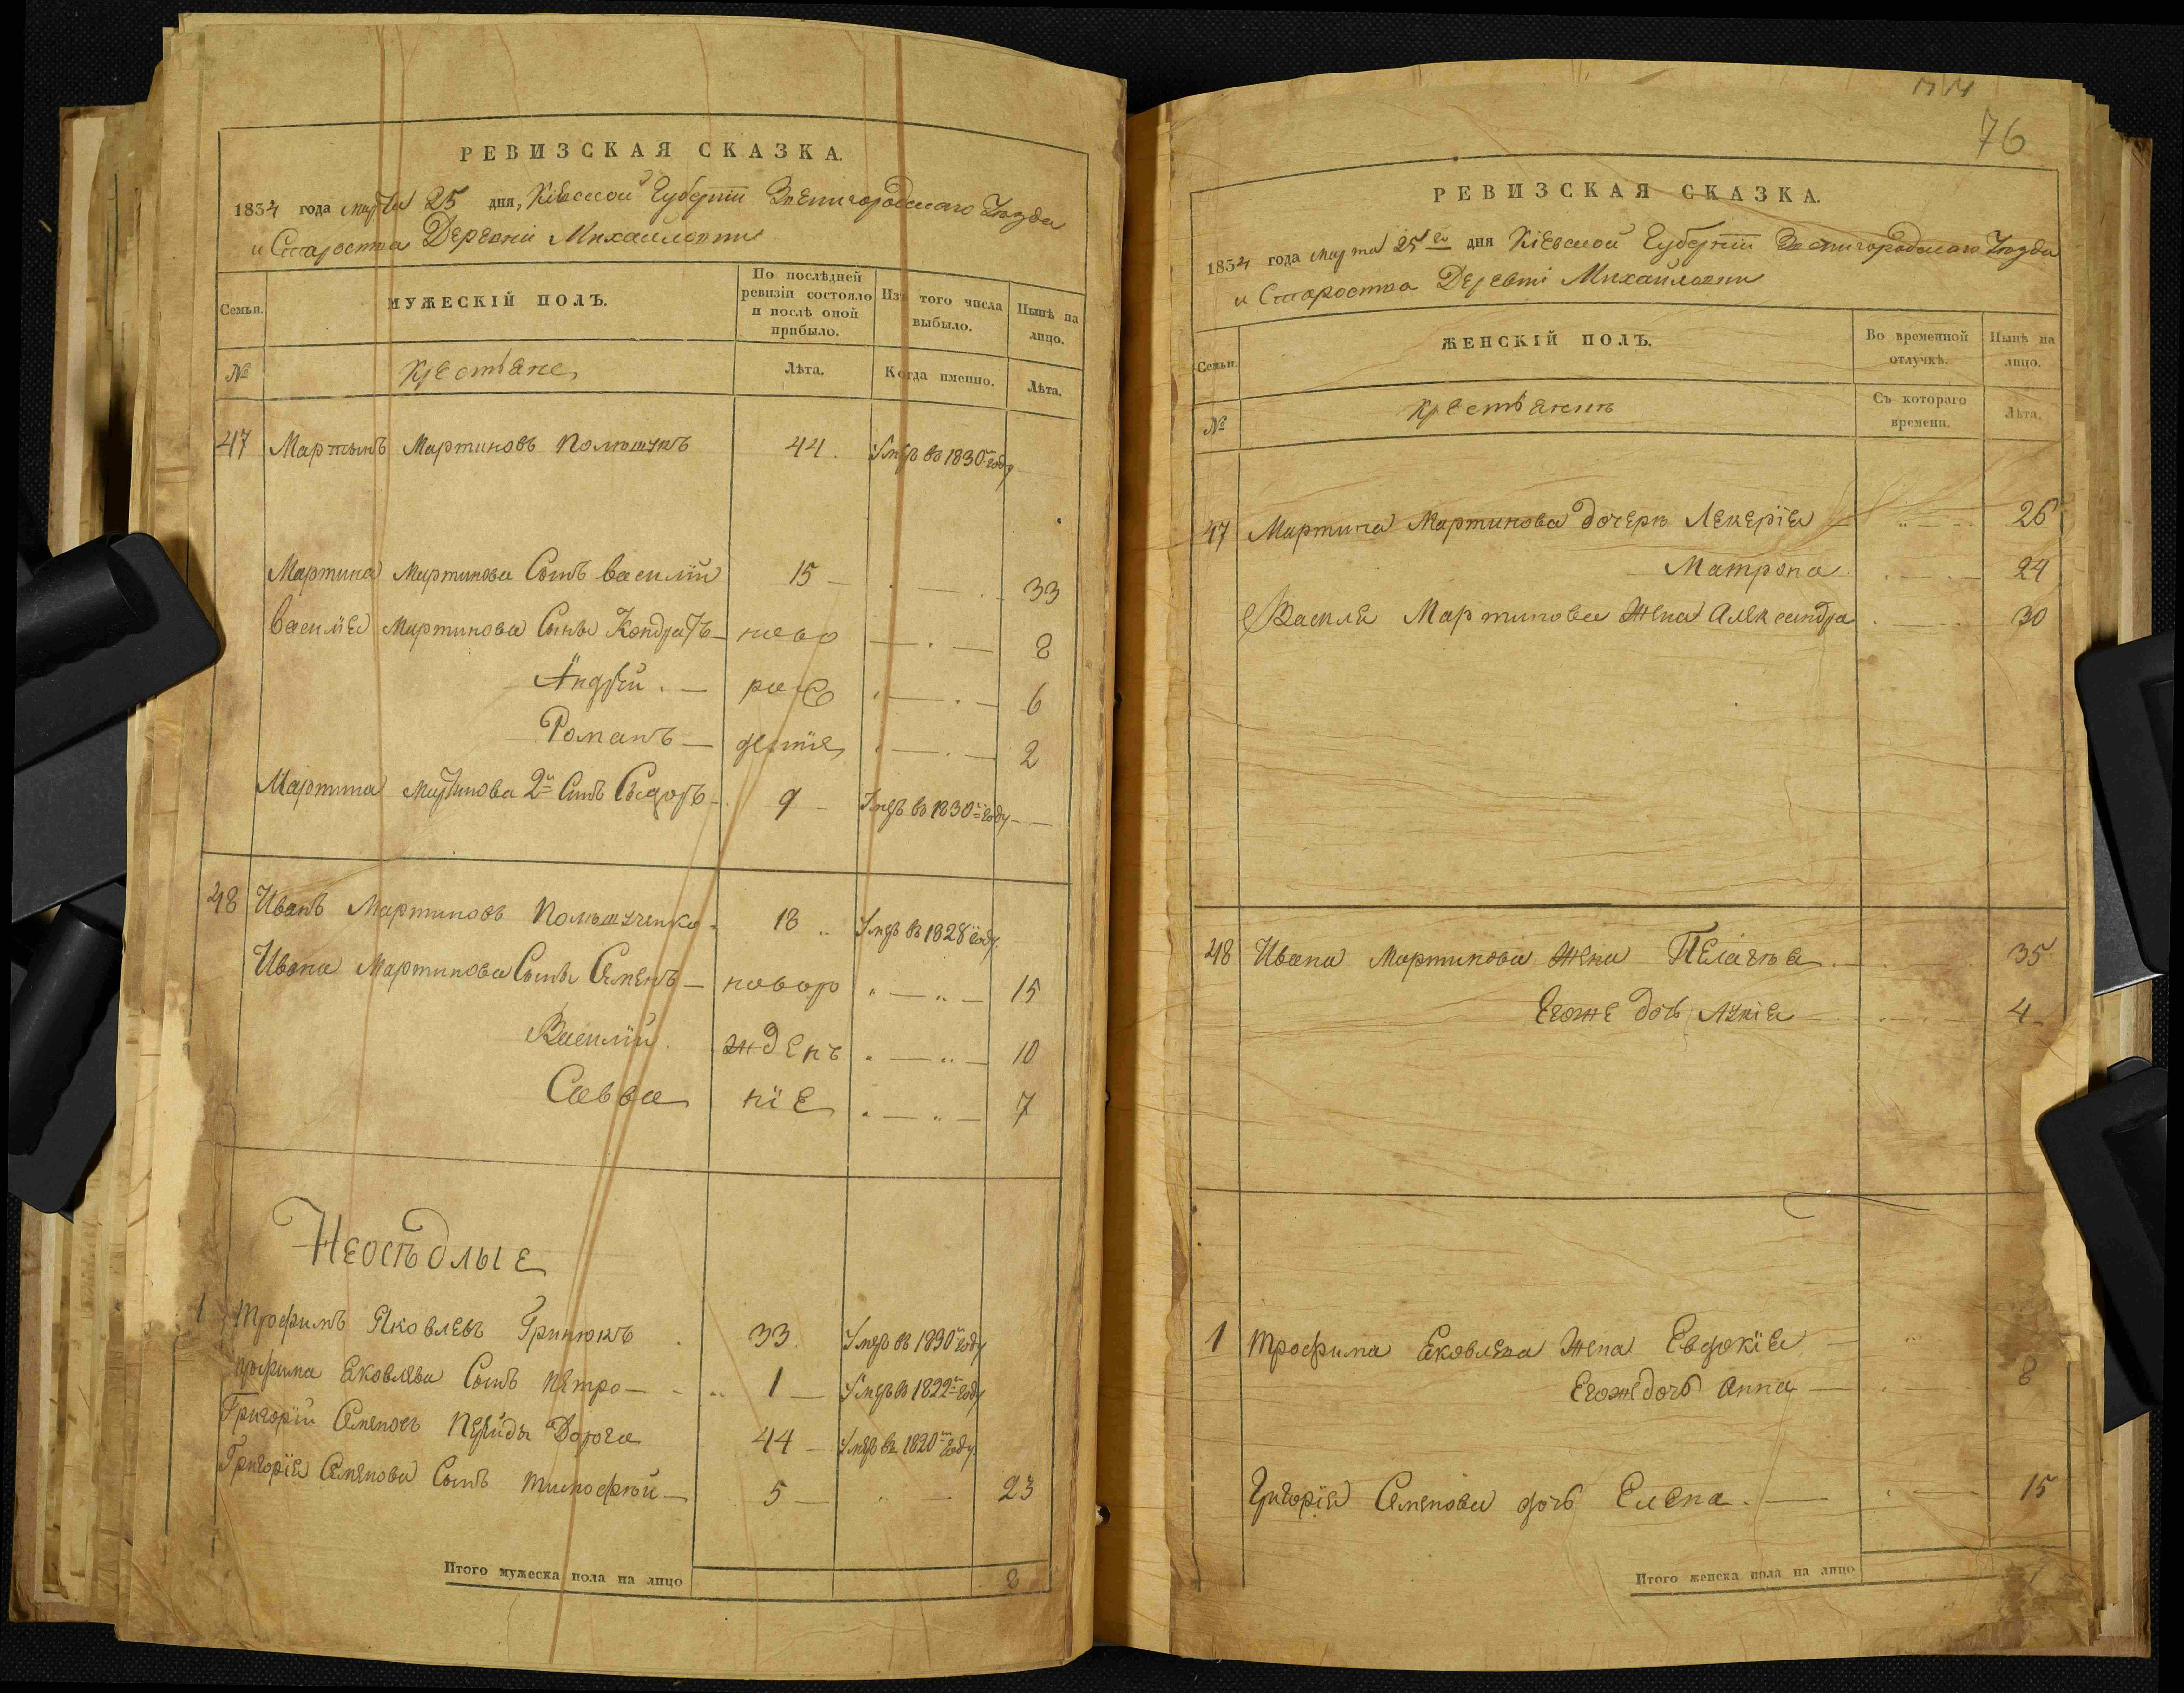 РЕВИЗСКАЯ СКАЗКА.
1834 года марта 25 дня, Кіевской Губерніи Звенигородскаго Уѣзда
и Староства Деревни Михайловки
Семьи. МУЖЕСКІЙ ПОЛЪ. По послѣдней ревизіи состояло и послѣ оной прибыло. Изъ того числа выбыло. Нынѣ на лицо.
№ Крестьяне Лѣта. Когда именно. Лѣта.
47 Мартынъ Мартиновъ 44. Умеръ въ 1830 году
Мартина Мартинова Сынъ Василій 15 — 33
Василія Мартинова Сыны Кондратъ — ново 8
Андрей — рож 6
Романъ — денніе 2
Мартина Мартинова 2й Синъ Сыдоръ — 9 — Умеръ въ 1830 году —
48 Иванъ Мартиновъ 18 Умеръ въ 1828 году
Ивана Мартинова Сыны Семенъ — новоро 15
Василій жденъ 10
Савва ніе 7
Неосѣдлые
1 Трофимъ Яковлевъ Гринюкъ 33. Умеръ въ 1830 году
Трофима Яковлева Сынъ Петро — 1 — Умеръ въ 1822 году
Григорій Семеновъ Дорога 44 — Умеръ въ 1820 году
Григорія Семенова Сынъ Тимофѣй — 5 — 23
Итого мужеска пола на лицо 8
76
РЕВИЗСКАЯ СКАЗКА.
1834 года Марта 25го дня Кіевской Губерніи Звенигородскаго Уѣзда
и Староства Деревни Михайловки
Семьи. ЖЕНСКІЙ ПОЛЪ. Во временной отлучкѣ. Нынѣ на лицо.
№ Крестьянкъ Съ котораго времени. Лѣта.
47 Мартина Мартинова дочери Лекерія 26
Матрона 24
Василя Мартинова Жена Александра 30
48 Ивана Мартинова Жена Пелагѣя 35
Егоже дочь Лукія 4
1 Трофима Яковлева Жена Евдокія
Егоже дочь Анна — 8
Григорія Семенова дочь Елена — 15
Итого женска пола на лицо